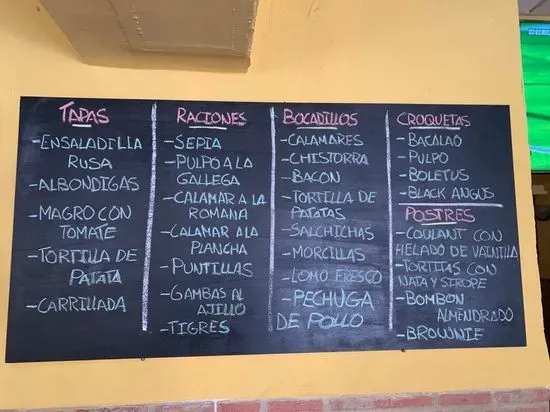 TAPAS
-ENSALADILLA
RUSA
-ALBONDIGAS
-MAGRO CON
TOMATE
-TORTILLA DE
PATATA
-CARRILLADA
RACIONES
-SEPIA
-PULPO A LA
GALLEGA
-CALAMAR A LA
ROMANA
-CALAMAR A LA
PLANCHA
-PUNTILLAS
-GAMBAS AL
AJILLO
-TIGRES
BOCADILLOS
-CALAMARES
-CHISTORRA
-BACON
-TORTILLA DE
PATATAS
-SALCHICHAS
-MORCILLAS
-LOMO FRESCO
-PECHUGA
DE POLLO
CROQUETAS
-BACALAO
-PULPO
-BOLETUS
-BLACK ANGUS
POSTRES
-COULANT CON
HELADO DE VAINILLA
-TORTITAS CON
NATA Y SIROPE
-BOMBON
ALMENDRADO
-BROWNIE